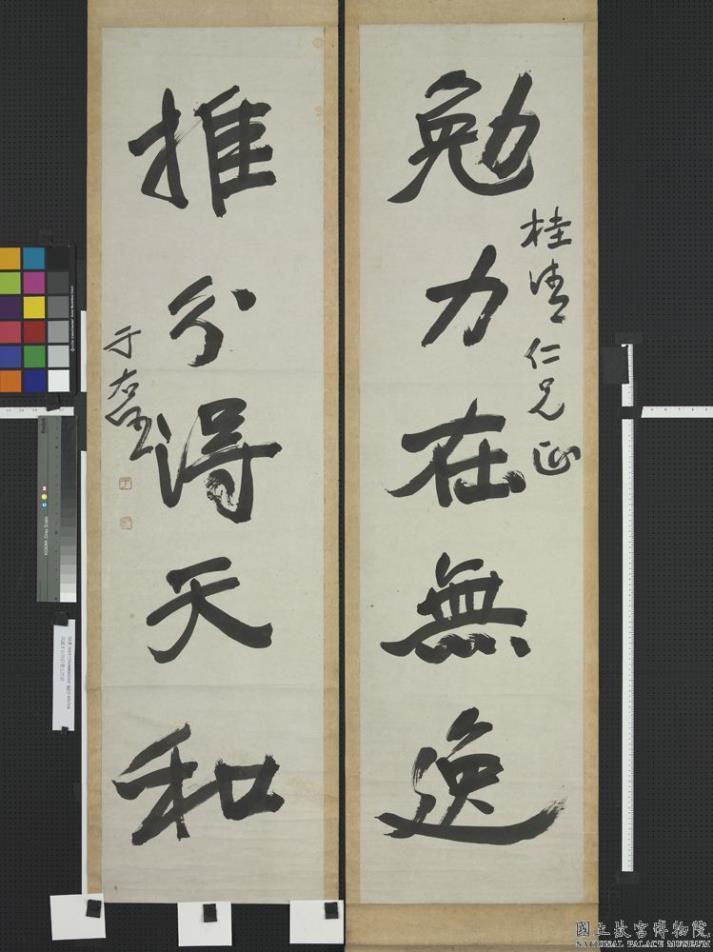 勉力在無逸
桂清仁兄正
推分得天和
于右任
國立故宮博物院
NATIONAL PALACE MUSEUM